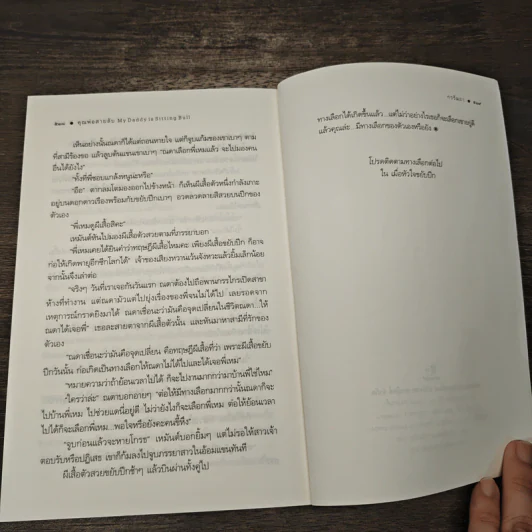 ๒๑๘ ✦ คุณพ่อสายลับ My Daddy is Strong Bull
เห็นอย่างนั้นณดาก็ได้แต่ถอนหายใจ แต่ก็จูบแก้มของเขาเบาๆ ตาม
ที่สามีร้องขอ แล้วสูบต้นแขนเขาเบาๆ "ณดาเลือกพี่เหมแล้ว จะไปมองคน
อื่นได้ยังไง"
"ทั้งที่พี่ชอบแกล้งหนูน่ะหรือ"
"อือ" ตากลมโตมองออกไปข้างหน้า ก็เห็นผีเสื้อตัวหนึ่งกำลังเกาะ
อยู่บนดอกดาวเรืองพร้อมกับขยับปีกเบาๆ อวดลวดลายสีสวยบนปีกของ
ตัวเอง
"พี่เหมดูผีเสื้อสิคะ"
เหมันต์หันไปมองผีเสื้อตัวสวยตามที่ภรรยาบอก
"พี่เหมเคยได้ยินคำว่าทฤษฎีผีเสื้อไหมคะ เพียงผีเสื้อขยับปีก ก็อาจ
ก่อให้เกิดพายุอีกซีกโลกได้" เจ้าของเสียงหวานเว้นจังหวะแล้วยิ้มเล็กน้อย
จากนั้นจึงเล่าต่อ
"จริงๆ วันที่เราเจอกันวันแรก ณดาต้องไปถือพานกรรไกรเปิดสาขา
ห้างที่ทำงาน แต่ณดามัวแต่ไปยุ่งเรื่องของพี่จนไม่ได้ไป เลยรอดจาก
เหตุการณ์กราดยิงมาได้ ณดาเชื่อนะว่ามันคือจุดเปลี่ยนในชีวิตณดา...ให้
ณดาได้เจอพี่" เธอละสายตาจากผีเสื้อตัวนั้น และหันมาหาสามีที่รักของ
ตัวเอง
"ณดาเชื่อนะว่ามันคือจุดเปลี่ยน คือทฤษฎีผีเสื้อที่ว่า เพราะผีเสื้อขยับ
ปีกวันนั้น ก่อเกิดเป็นทางเลือกให้ณดาไม่ได้ไปและได้เจอพี่เหม"
"หมายความว่าถ้าย้อนเวลาไปได้ ก็จะไปงานมากกว่ามาบ้านพี่ใช่ไหม"
"ใครว่าล่ะ" ณดาบอกอายๆ "ต่อให้มีทางเลือกมากกว่านั้นณดาก็จะ
ไปบ้านพี่เหม ไปช่วยแดนี่อยู่ดี ไม่ว่ายังไงก็จะเลือกพี่เหม ต่อให้ย้อนเวลา
ไปได้ก็จะเลือกพี่เหม...พอใจหรือยังคะคนขี้หึง"
"จูบก่อนแล้วจะหายโกรธ" เหมันต์บอกยิ้มๆ แต่ไม่รอให้สาวเจ้า
ตอบรับหรือปฏิเสธ เขาก็ก้มลงไปจูบภรรยาสาวในอ้อมแขนทันที
ผีเสื้อตัวสวยขยับปีกช้าๆ แล้วบินผ่านทั้งคู่ไป
ทางเลือกได้เกิดขึ้นแล้ว...แต่ไม่ว่าอย่างไรเธอก็จะเลือกเขาอยู่ดี
แล้วคุณล่ะ...มีทางเลือกของตัวเองหรือยัง
โปรดติดตามทางเลือกต่อไป
ใน เมื่อหัวใจขยับปีก